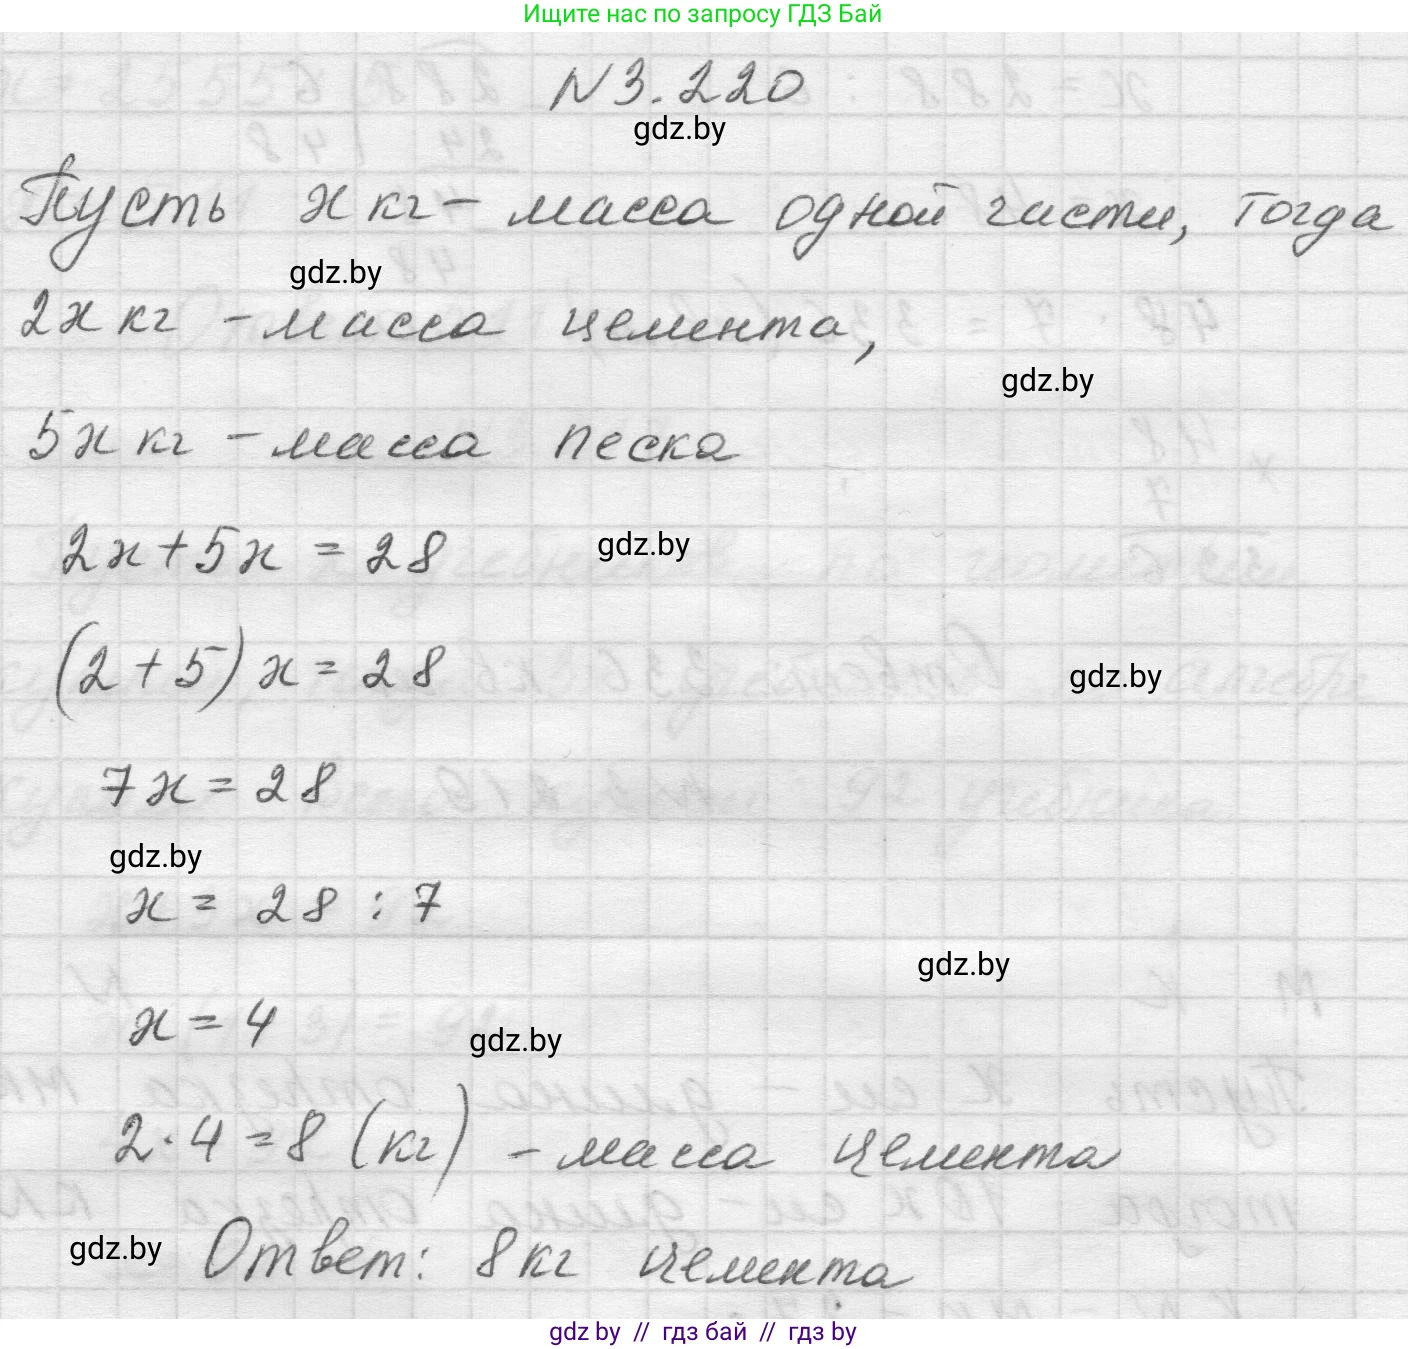 Ищите нас по запросу ГДЗ Бай
N 3.220
gdz.by
Пусть x кг - масса одной части, тогда
gdz.by
2x кг - масса цемента,
gdz.by
5x кг - масса песка
2x + 5x = 28
gdz.by
(2 + 5) x = 28
gdz.by
7x = 28
gdz.by
x = 28 : 7
gdz.by
x = 4
gdz.by
2 · 4 = 8 (кг) - масса цемента
gdz.by
Ответ: 8 кг цемента
gdz by // гдз бай // гдз by